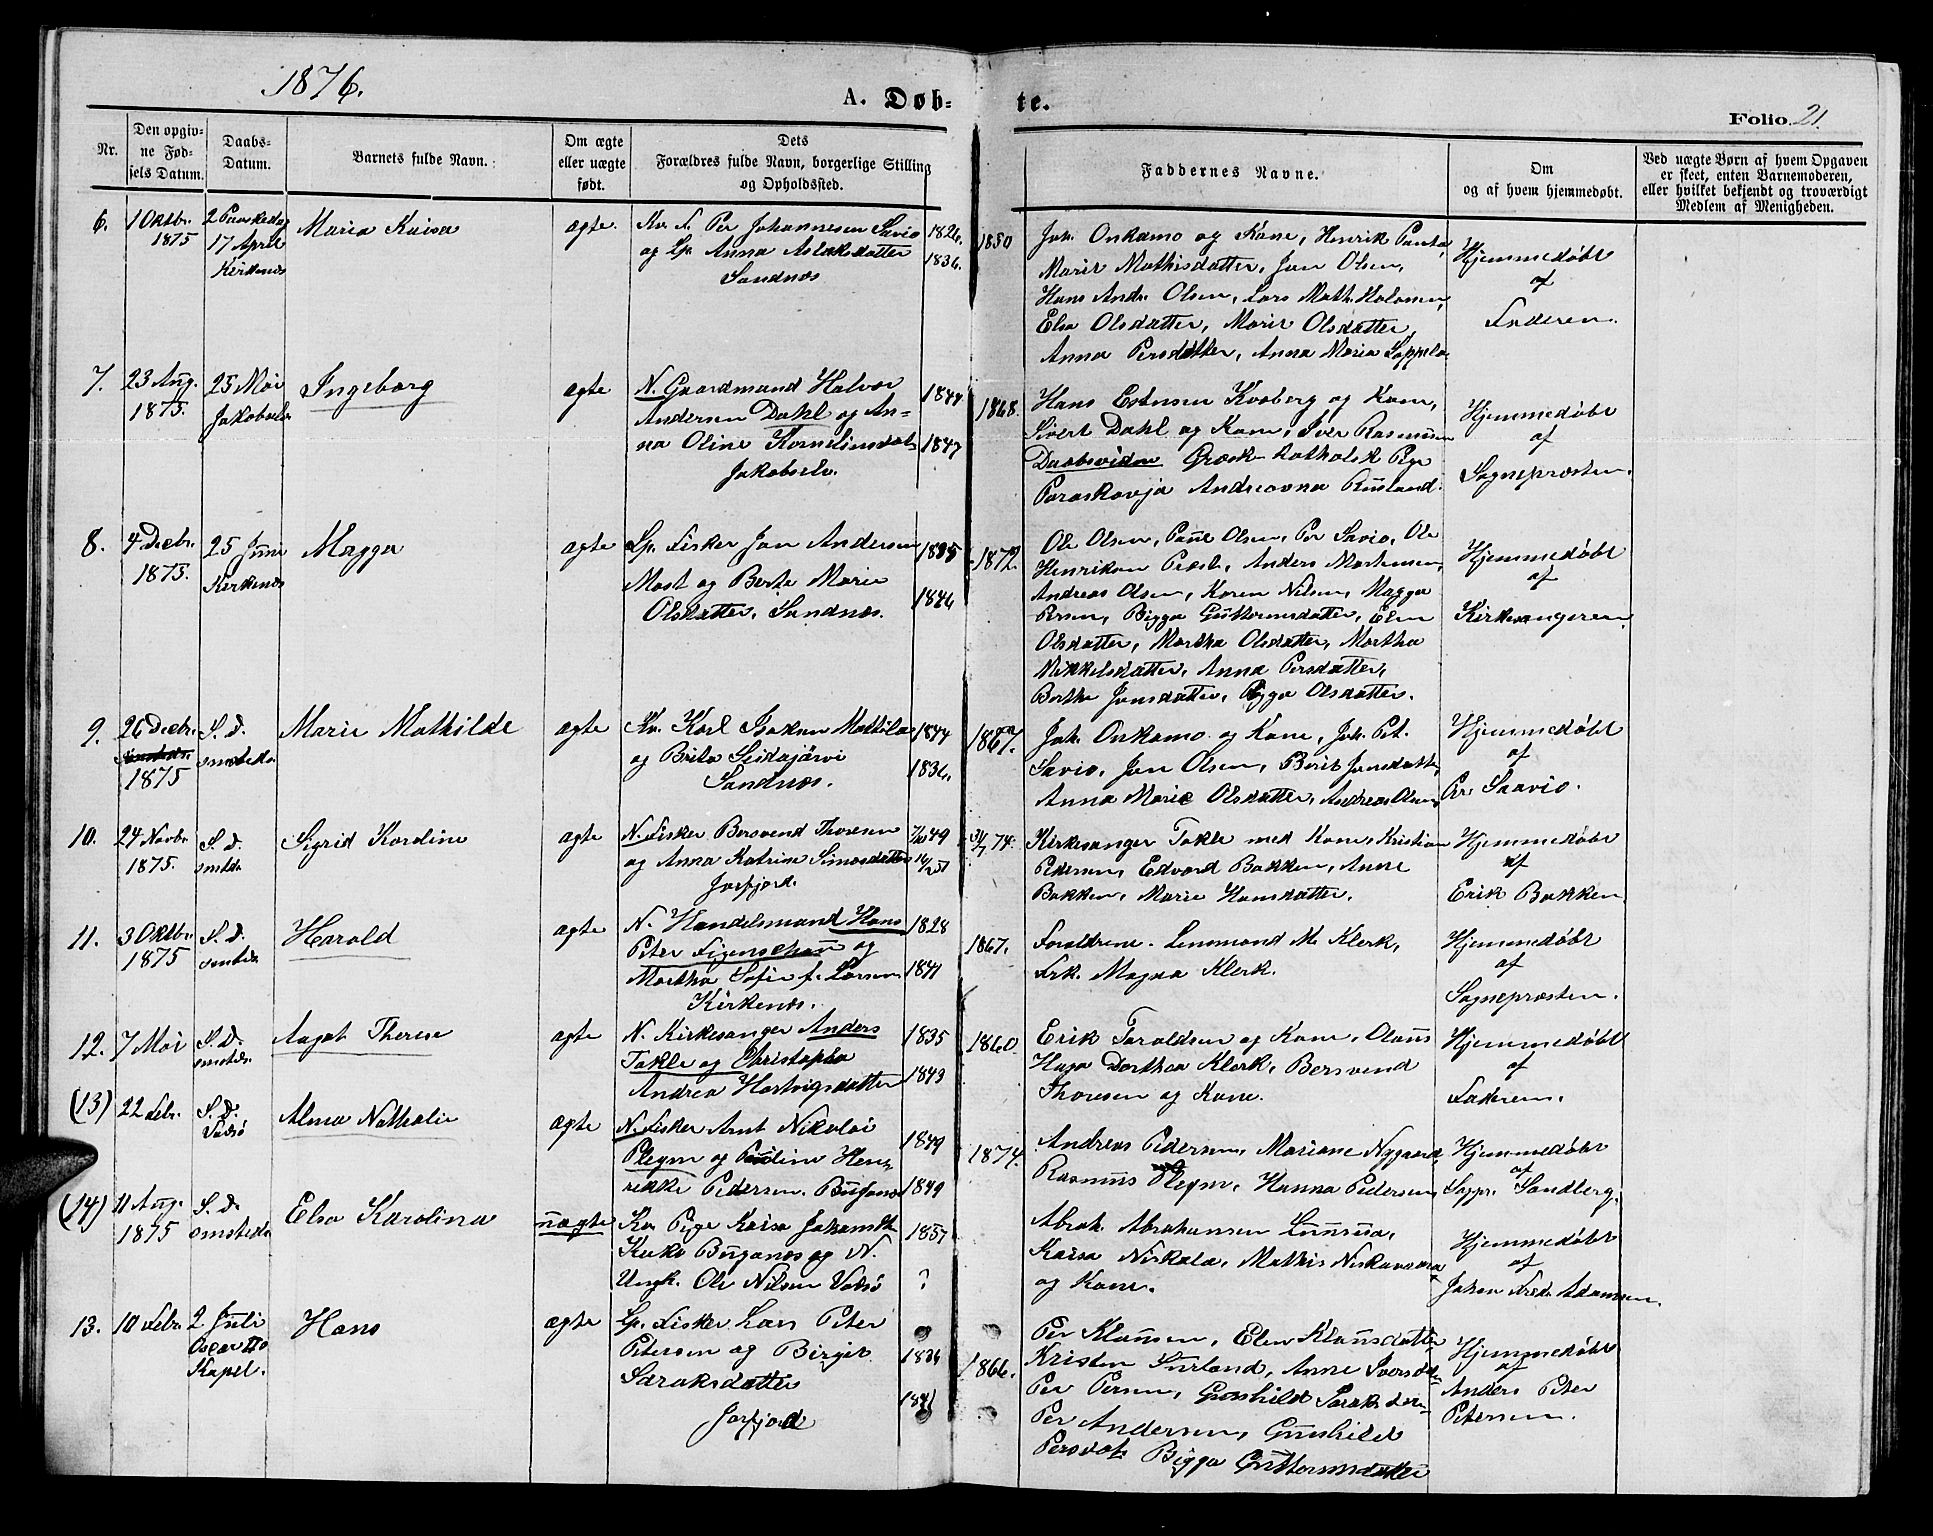 1876.
A. Døb-
te.
Folio 21.
Nr.
Den opgiv-
ne Fød-
sels Datum.
Daabs-
Datum.
Barnets fulde Navn.
Om ægte
eller uægte
født.
Dets
Forældres fulde Navn, borgerlige Stilling
og Opholdssted.
Faddernes Navne.
Om
og af hvem hjemmedøbt.
Ved uægte Børn af hvem Opgaven
er skeet, enten Barnemoderen,
eller hvilket bekjendt og troværdigt
Medlem af Menigheden.
6.
1 Oktbr.
1875
2 Paaskedag
17 April
Kirkenæs
Maria Kaisa
ægte.
Kv. F. Per Johannesen Savio
og Lp. Anna Aslaksdatter
Sandnæs
1826.
1836.
1850
Joh. Onkamo og Kone, Henrik
Marit Mathisdatter, Jon Olsen,
Hans Andr. Olsen, Lars Math.
Elsa Olsdatter, Marit Olsdatter,
Anna Persdatter, Anna Maria
Hjemmedøbt
af
Faderen.
7.
23 Aug.
1875.
25 Mai
Jakobselv
Ingeborg
ægte
N. Gaardmand Halvor
Andersen Dahl og An-
na Oline Kornelius
Jakobselv.
1844
1847
1868.
Hans Estensen Kvoberg og Kone,
Sivert Dahl og Kone, Iver Rasmussen
Daabsvidne Græsk Katholsk Pige
Paraskovja Andreovna Rusland.
Hjemmedøbt
af
Sognepræsten.
8.
4 Decbr.
1875.
25 Juni
Kirkenæs
Magga
ægte
Lp. Fisker Jon Andersen
Most og Berte Marie
Olsdatter, Sandnæs.
1835
1846
1872.
Ole Olsen, Olsen, Per Savio, Ole
Henriksen Anders Mortensen,
Andreas Olsen, Karen Nilsen, Magga
Bigga Guttormsdatter, Elen
Olsdatter, Martha Olsdatter, Martha
Mikkelsdatter, Anna Persdatter,
Berthe Jonsdatter, Bigga Olsdatter.
Hjemmedøbt
af
Kirkesangeren.
9.
26 Decbr.
1875
S. d.
smsteds
Marie Mathilde
ægte
Kv. Karl Isaksen Mattila
og Brita Seidajärvi
Sandnæs.
1844
1836.
1867.
Joh. Onkamo og Kone, Joh. Pet.
Savio, Jon Olsen, Berit Jonsdatter,
Anna Marie Olsdatter, Andreas Olsen
Hjemmedøbt
af
Per Saavio.
10.
24 Novbr.
1875.
S. d.
smstds.
Sigrid Kardine
ægte
N. Fisker Bersvend Thoresen
og Anna Katrine Simosdatter
Jarfjord.
49
51
74.
Kirkesanger Takle med Kone, Kristian
Pedersen, Edvard Bakken, Anne
Bakken, Marie Hansdatter.
Hjemmedøbt
af
Erik Bakken
11.
3 Oktbr.
1875
S. d.
smsteds.
Harald
ægte
N. Handelsmand Hans
Peter Figenschau og
Martha Sofie f. Larsen
Kirkenæs.
1828
1841
1867.
Forældrene. Lensmand M. Klerk,
Frk. Magna Klerk.
Hjemmedøbt
af
Sognepræsten.
12.
7 Mai
S. d.
smsteds.
Aagot Therese
ægte
N. Kirkesanger Anders
Takle og Christopha
Andrea Hartvigsdatter
1835
1843
1860.
Erik Taraldsen og Kone, Olaus
Dorthea Klerk, Bersvend
Thoresen og Kone.
Hjemmedøbt
af
Faderen.
(13)
22 Febr.
S. d.
Vadsø
Alma Nathalie
ægte
N. Fisker Arnt Nikolai
Plegm og Pauline Hen-
rikke Pedersen. Bugønæs
1849
1849
1874.
Andreas Pedersen, Mariane Nygaard,
Rasmus Plegm, Hanna Pedersen,
Hjemmedøbt
af
Sandberg.
(14)
11 Aug.
1875
S. d.
smsteds
Elsa Karolina
uægte
Kv. Pige Kaisa Johansdt.
Kuko Bugønæs og N.
Ungk. Ole Nilsen Vadsø
1857
?
Abrah. Abrahamsen
Kaisa Niskala, Mathis
og Kone.
Hjemmedøbt
af
Johan Fred. Adamsen.
13.
10 Febr.
2 Juli
Oscar IIs
Kapel.
Hans
ægte
Lp. Fisker Lars Peter
Petersen og Birgit
Saraksdatter
Jarfjord
1836
1841
1866.
Per Klausen, Elen Klausdatter
Kristen Anne
Per Persen, Gunhild
Per Andersen, Gunhild
Persdatr. Bigga Guttormsdatter
Hjemmedøbt
af
Anders Peter
Petersen.